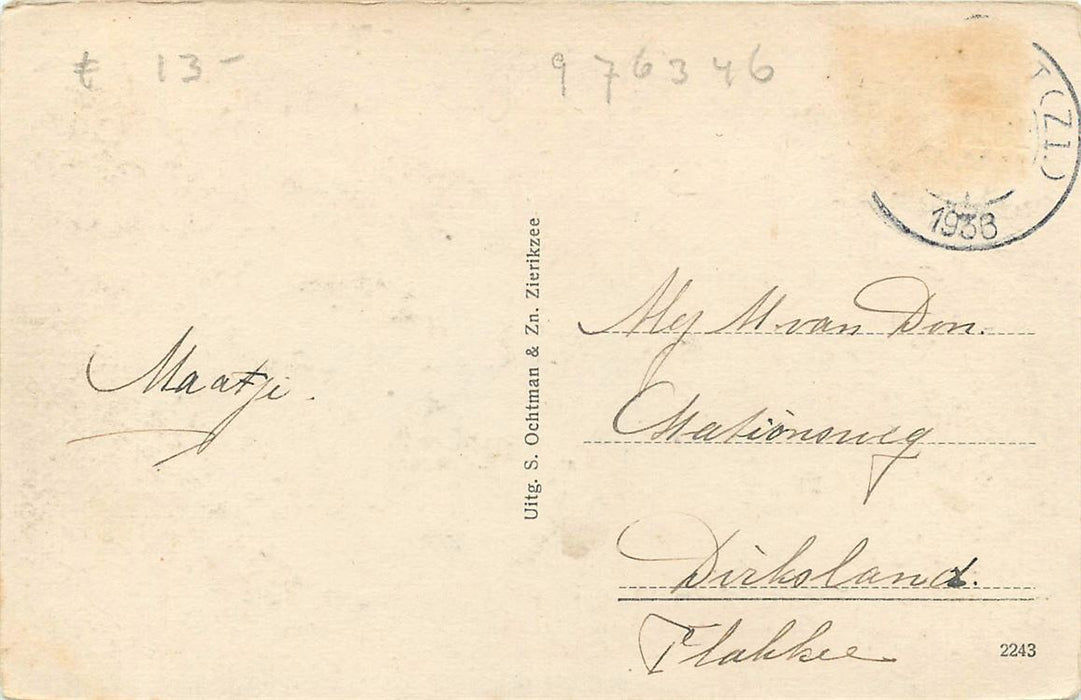 € 13-
976346
(ZL)
1938
Maatje.
Uitg. S. Ochtman & Zn. Zierikzee
Mej M van Don.
Stationsweg
Dirksland.
Flakkee
2243